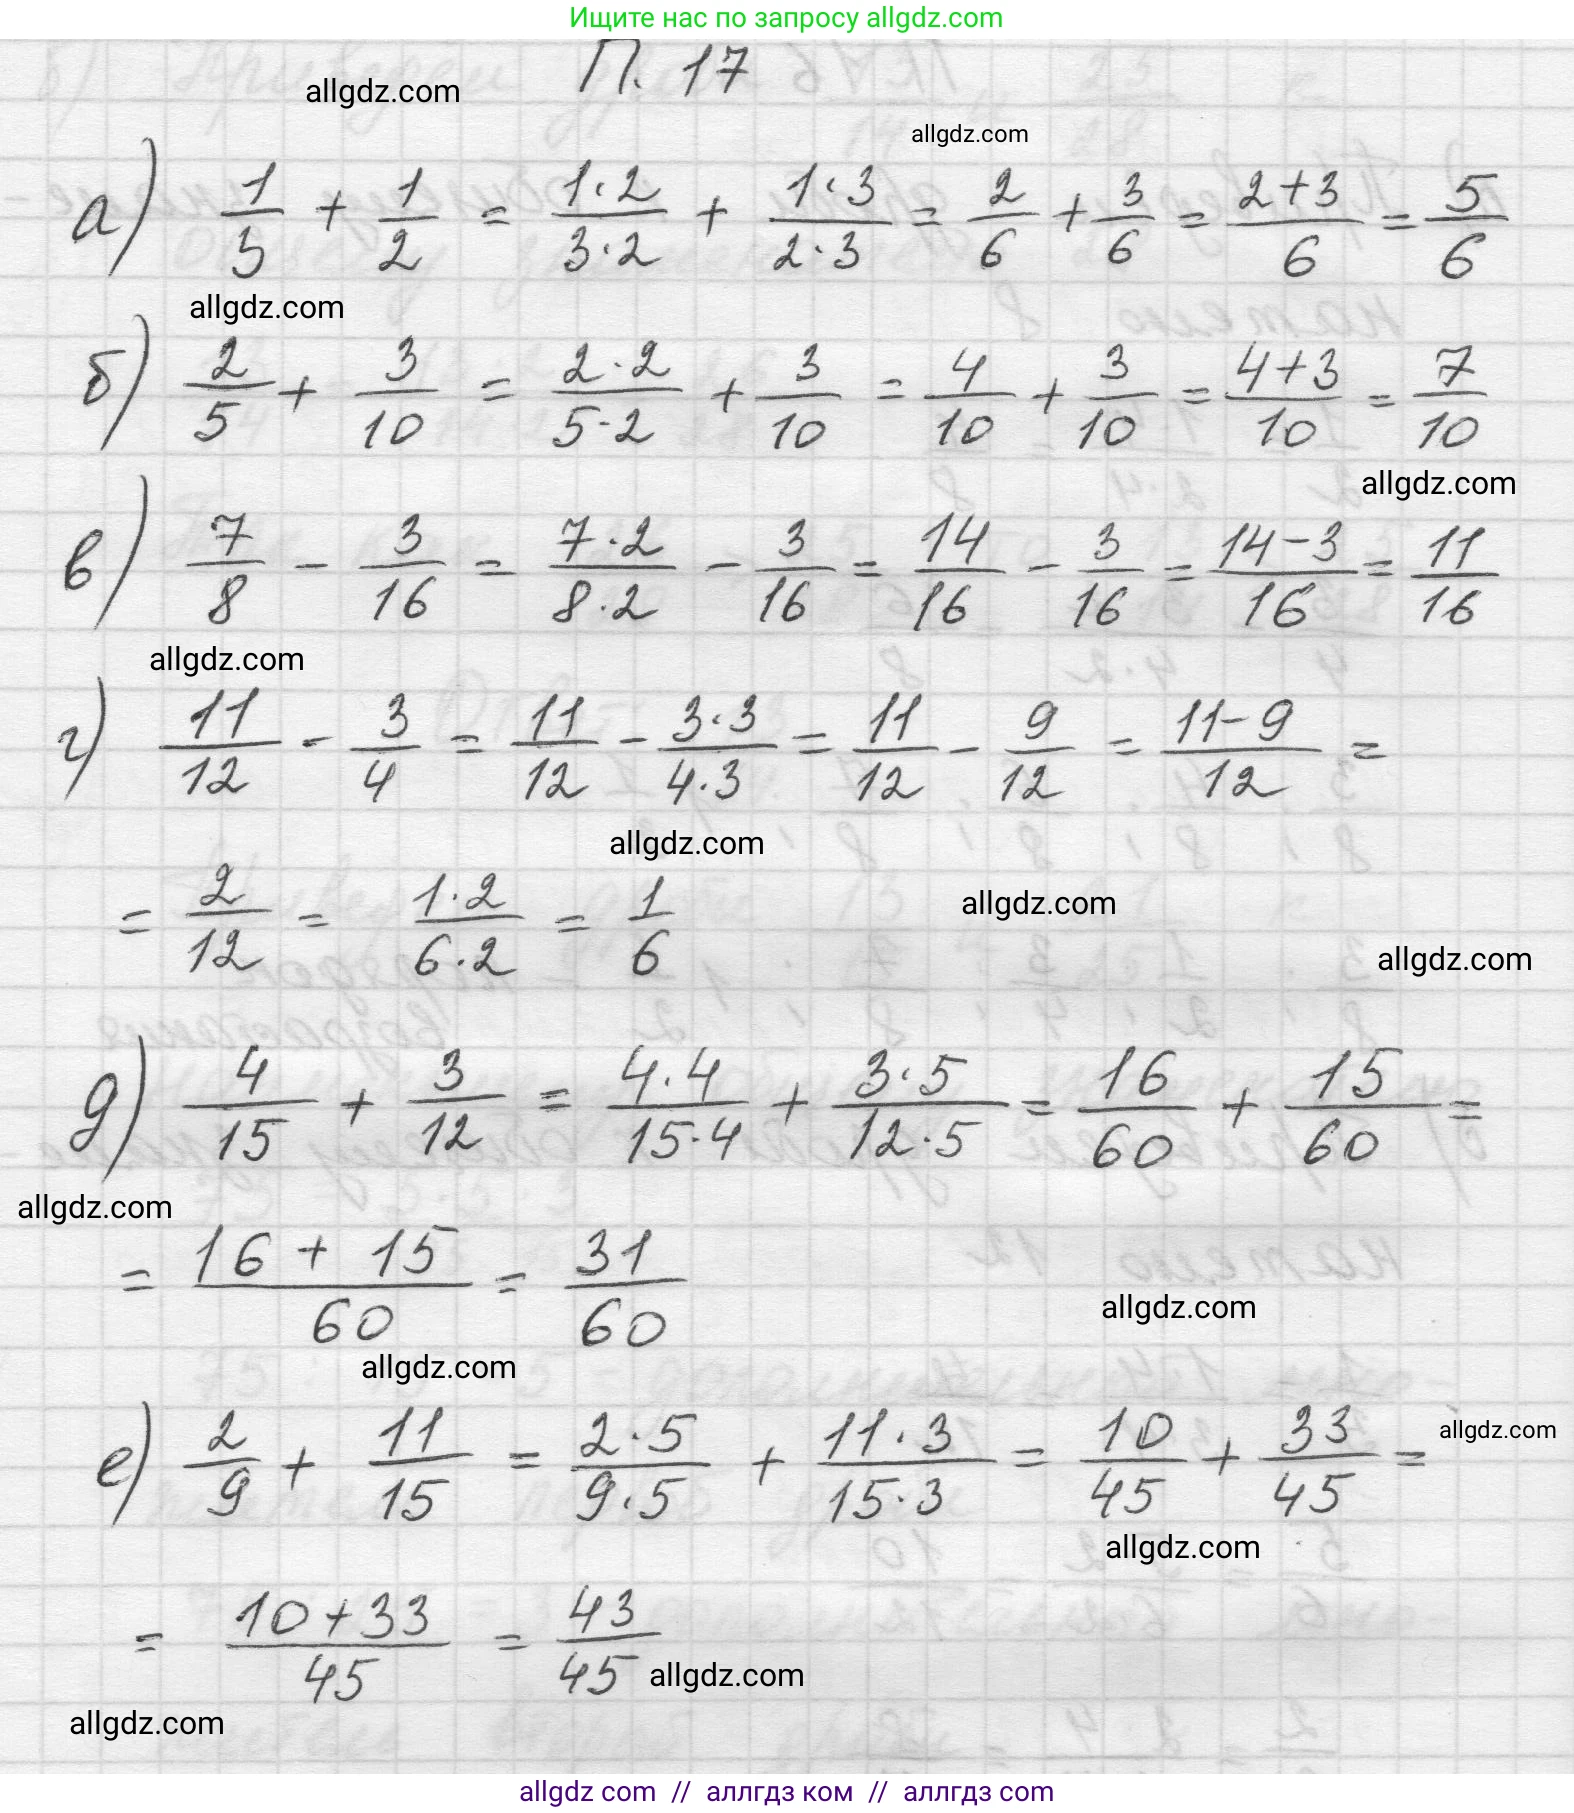 Ищите нас по запросу allgdz.com
П. 17
allgdz.com
allgdz.com
а) 1/3 + 1/2 = 1·2/3·2 + 1·3/2·3 = 2/6 + 3/6 = 2+3/6 = 5/6
allgdz.com
б) 2/5 + 3/10 = 2·2/5·2 + 3/10 = 4/10 + 3/10 = 4+3/10 = 7/10
allgdz.com
в) 7/8 - 3/16 = 7·2/8·2 - 3/16 = 14/16 - 3/16 = 14-3/16 = 11/16
allgdz.com
г) 11/12 - 3/4 = 11/12 - 3·3/4·3 = 11/12 - 9/12 = 11-9/12 =
allgdz.com
= 2/12 = 1·2/6·2 = 1/6
allgdz.com
allgdz.com
д) 4/15 + 3/12 = 4·4/15·4 + 3·5/12·5 = 16/60 + 15/60 =
allgdz.com
= 16+15/60 = 31/60
allgdz.com
allgdz.com
е) 2/9 + 11/15 = 2·5/9·5 + 11·3/15·3 = 10/45 + 33/45 =
allgdz.com
allgdz.com
= 10+33/45 = 43/45
allgdz.com
allgdz.com
allgdz com // аллгдз ком // аллгдз com